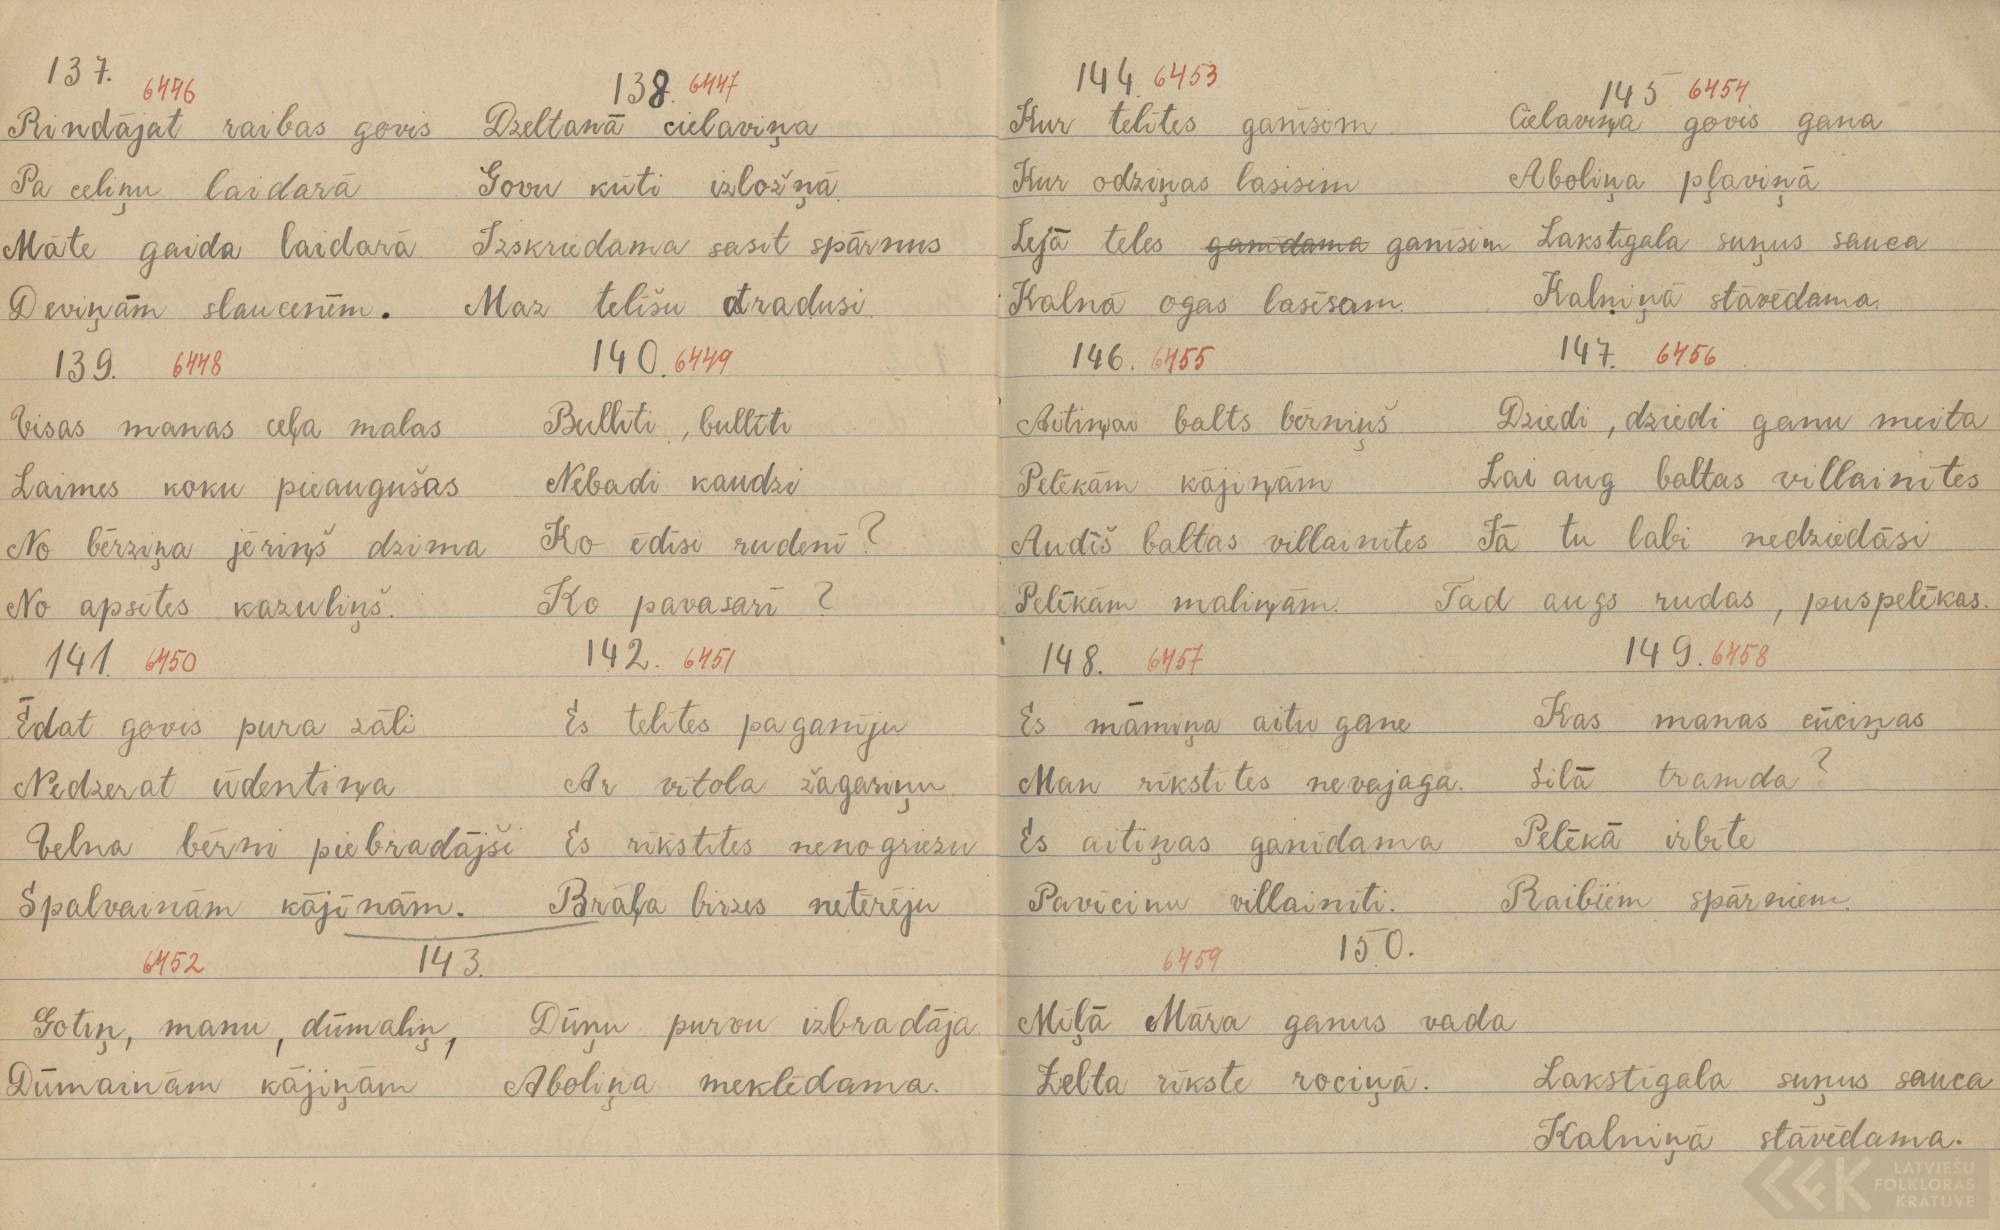 137. 6446
Rindājat raibas govis
Pa celiņu laidarā
Māte gaida laidarā
Deviņām slaucenēm.
138. 6447
Dzeltanā cielaviņa
Govu kūti izložņā
Izskriedama sasit spārnus
Maz telīšu atradusi.
139. 6448
Visas manas ceļa malas
Laimes koku pieaugušas
No bērziņa jēriņš dzima
No apsītes kazuliņš.
140. 6449
Bullīti, bullīti
Nebadi kaudzi
Ko ēdīsi rudenī?
Ko pavasarī?
141. 6450
Ēdat govis pura zāli
Nedzerat ūdentiņa
Velna bērni piebradājši
Spalvainām kājīnām.
142. 6451
Es telītes paganīju
Ar vītola žagariņu
Es rīkstītes nenogriezu
Brāļa birzes netērēju
6452 143.
Gotiņ, manu, dūmaliņ,
Dūmainām kājiņām
Dūņu purvu izbradāja
Aboliņa meklēdama.
144. 6453
Kur telītes ganīsom
Kur odziņas lasīsim
Lejā teles ganīdama ganīsim
Kalnā ogas lasīsam.
145 6454
Cielaviņa govis gana
Aboliņa pļaviņā
Lakstīgala suņus sauca
Kalniņā stāvēdama.
146. 6455
Aitiņai balts bērniņš
Pelēkām kājiņām
Audīš baltas villainītes
Pelēkām maliņām.
147. 6456
Dziedi, dziedi ganu meita
Lai aug baltas villainītes
Jā tu labi nedziedāsi
Tad augs rudas, puspelēkas.
148. 6457
Es māmiņa aitu gane
Man rīkstītes nevajaga.
Es aitiņas ganīdama
Pavīcinu villainīti.
149. 6458
Kas manas cūciņas
Silā tramda?
Pelēkā irbīte
Raibïem spārniem.
6459 150.
Mīļā Māra ganus vada
Zelta rīkste rociņā.
Lakstīgala suņus sauca
Kalniņā stāvēdama.
LATVIEŠU
FOLKLORAS
KRĀTUVE